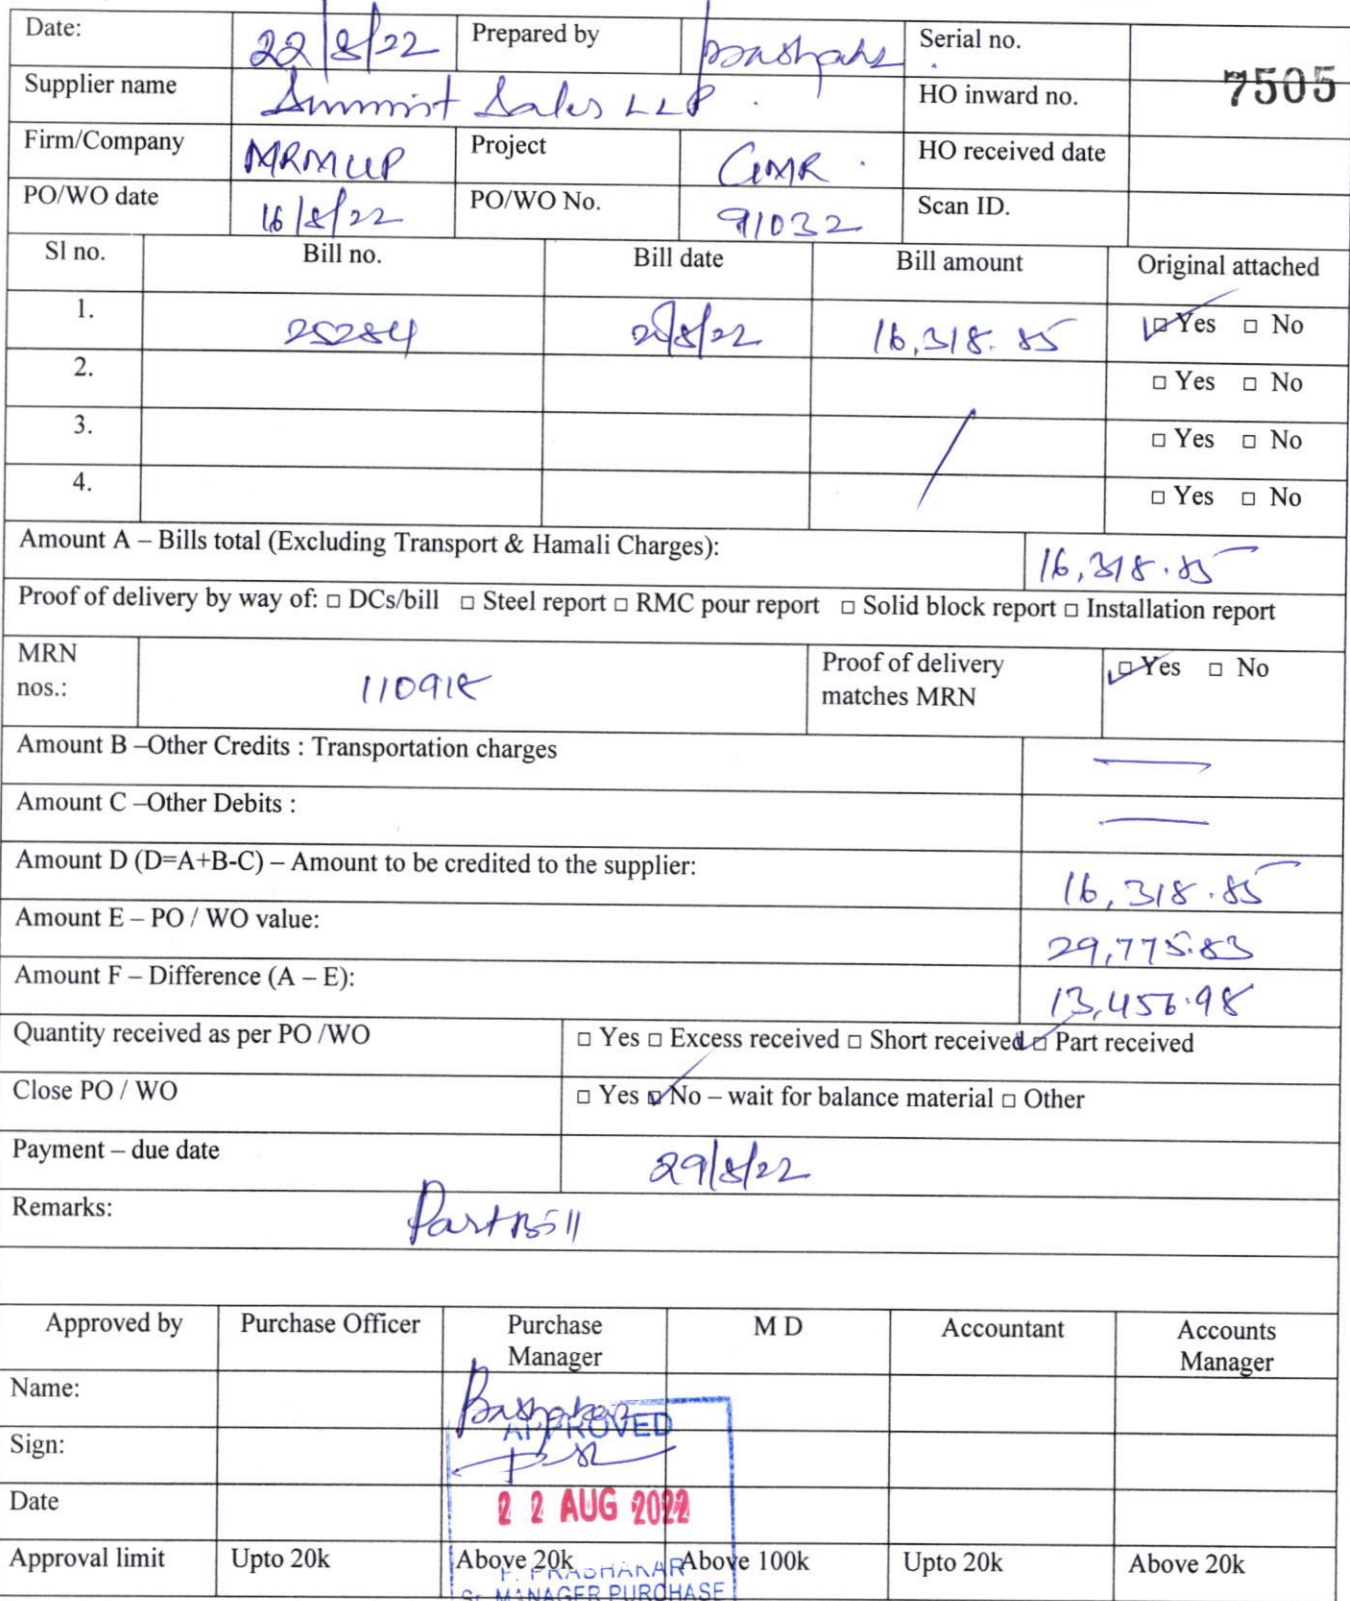 Date: 22/8/22 Prepared by Serial no.
7505
Supplier name Summit Sales LLP. HO inward no.
Firm/Company MRMLLP Project GMR. HO received date
PO/WO date 16/8/22 PO/WO No. 91032 Scan ID.
Sl no. Bill no. Bill date Bill amount Original attached
1. 25284 /8/22 16,318.85 ☑ Yes □ No
2. □ Yes □ No
3. □ Yes □ No
4. □ Yes □ No
Amount A – Bills total (Excluding Transport & Hamali Charges): 16,318.85
Proof of delivery by way of: □ DCs/bill □ Steel report □ RMC pour report □ Solid block report □ Installation report
MRN nos.: 110918 Proof of delivery matches MRN ☑ Yes □ No
Amount B –Other Credits : Transportation charges —
Amount C –Other Debits : —
Amount D (D=A+B-C) – Amount to be credited to the supplier: 16,318.85
Amount E – PO / WO value: 29,775.83
Amount F – Difference (A – E): 13,456.98
Quantity received as per PO /WO □ Yes □ Excess received □ Short received ☑ Part received
Close PO / WO □ Yes ☑ No – wait for balance material □ Other
Payment – due date 29/8/22
Remarks: Part Bill
Approved by Purchase Officer Purchase Manager M D Accountant Accounts Manager
Name:
APPROVED
Sign:
Date 22 AUG 2022
Approval limit Upto 20k Above 20k Above 100k Upto 20k Above 20k
P. PRABHAKAR
Sr. MANAGER PURCHASE